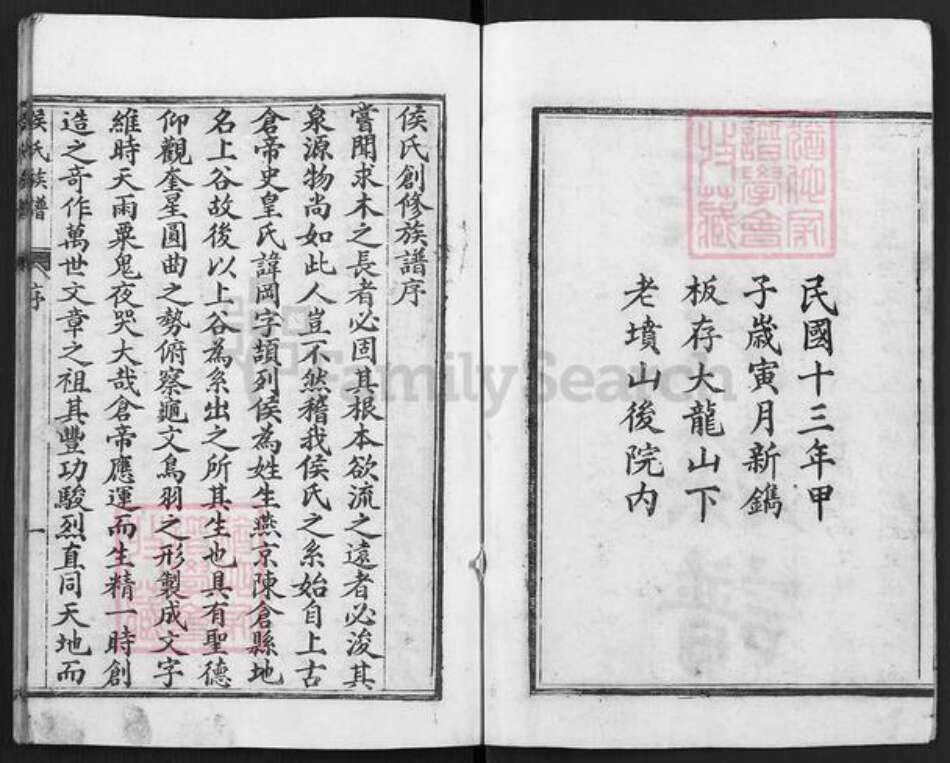 民國十三年甲
子歲寅月新鐫
板存大龍山下
老墳山後院內
侯氏創修族譜序
嘗聞求木之長者必固其根本欲流之遠者必浚其
泉源物尚如此人豈不然稽我侯氏之系始自上古
倉帝史皇氏諱岡字頡列侯為姓生燕京陳倉縣地
名上谷故後以上谷為系出之所其生也具有聖德
仰觀奎星圓曲之勢俯察龜文鳥羽之形製成文字
維時天雨粟鬼夜哭大哉倉帝應運而生精一時創
造之奇作萬世文章之祖其豐功駿烈直同天地而
侯氏族譜 序 一
FamilySearch